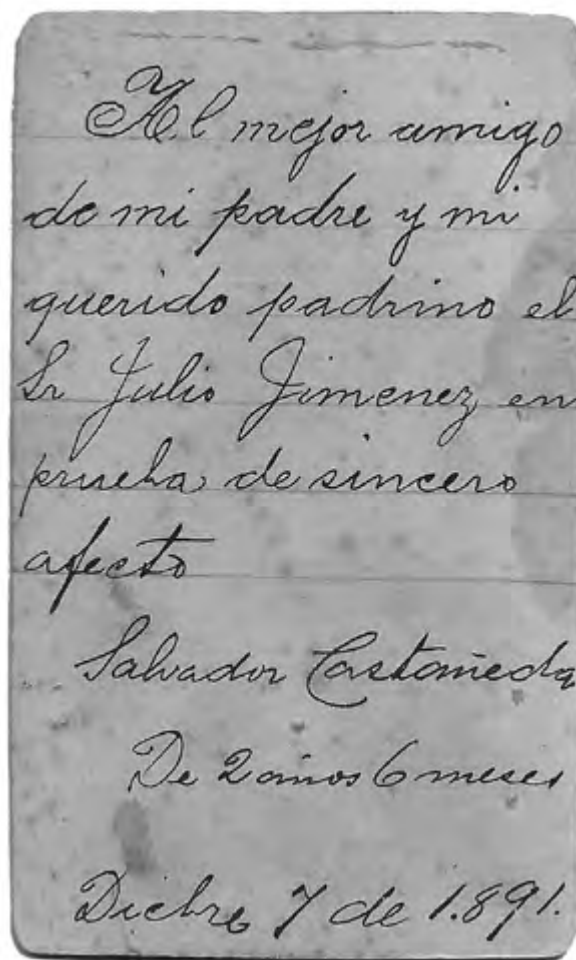 Al mejor amigo
de mi padre y mi
querido padrino el
Sr Julio Jimenez en
prueba de sincero
afecto
Salvador Castañeda
De 2 años 6 meses
Dicbre 7 de 1.891.